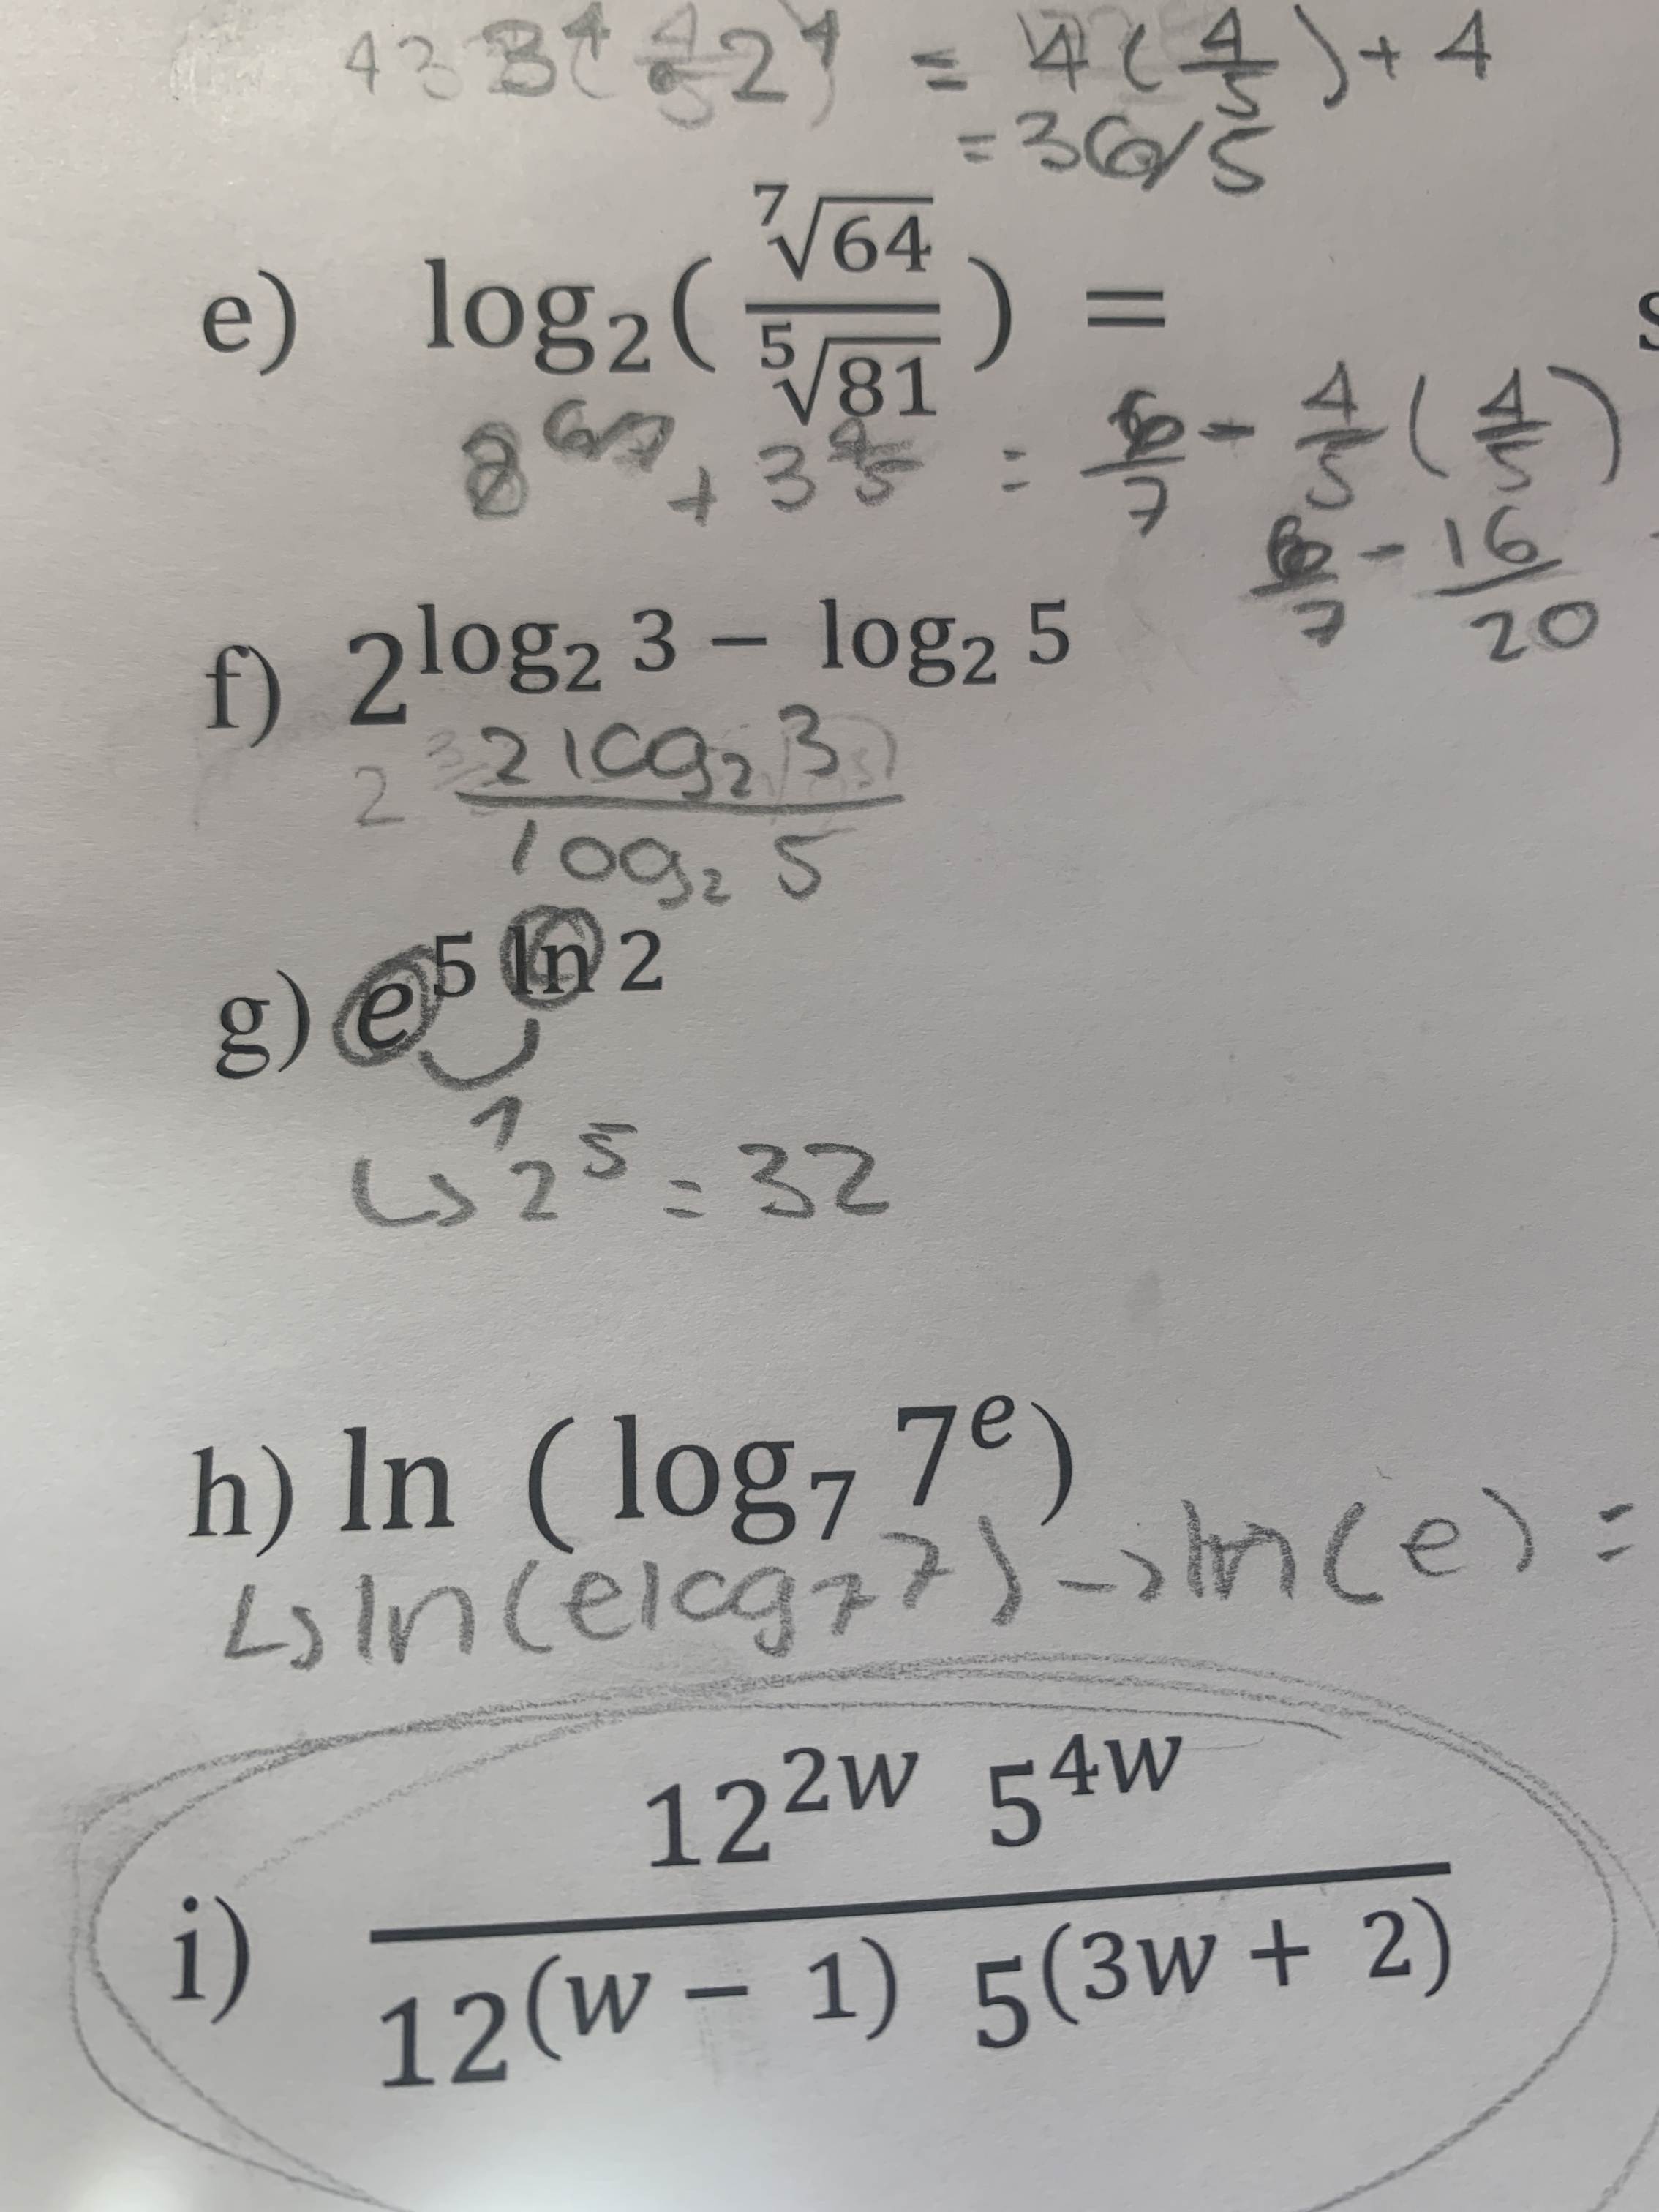 = 4(4/5)+4
= 36/5
e) log₂(⁷√64 / ⁵√81) =
+ 3 = 6/7 - 4/5(4/5)
6/7 - 16/20
f) 2^(log₂ 3 − log₂ 5)
2 log₂ 3 / log₂ 5
g) e^(5 ln 2)
↳ 2⁵ = 32
h) ln (log₇ 7ᵉ)
↳ ln(e log₇ 7) → ln(e) =
i) 12^(2w) 5^(4w) / 12^(w − 1) 5^(3w + 2)